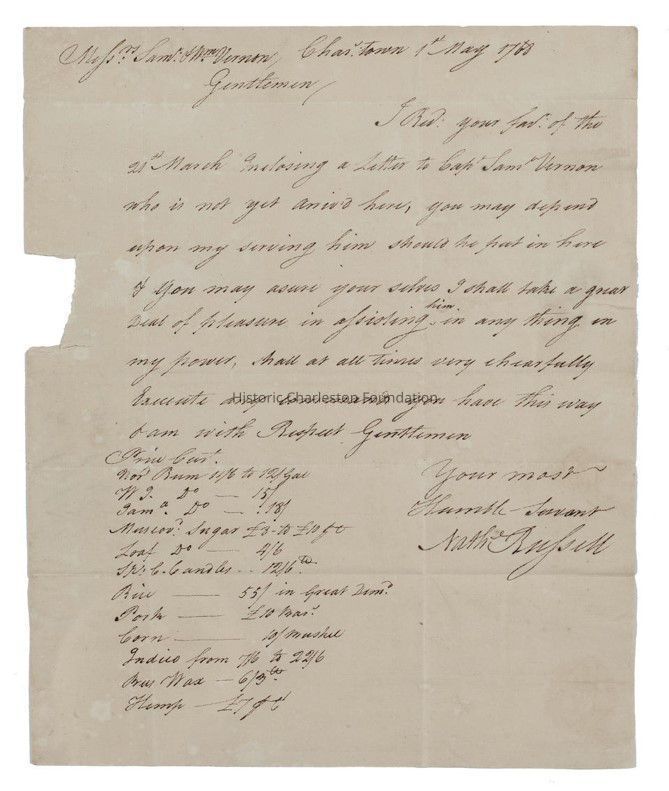 Messrs. Saml. & Wm Vernon, Chas.town 1st May 1768
Gentlemen,
I Recd. your favr. of the
21st March Inclosing a Letter to Capt. Saml. Vernon
who is not yet Arriv'd here, you may depend
upon my serving him should he put in here
& you may asure your selves I shall take a great
Deal of pleasure in assisting him in any thing in
my power, shall at all times very chearfully
Execute any you have this way
I am with Respect Gentlemen
Your most
Humble Servant
Nathl. Russell
Price Curt.
Nord. Rum 11/6 to 12/ Gal
W I. Do — 15/
Jama. Do — 18/
Muscovo. Sugar £8 to £10 pr Ct
Loaf Do — 4/6
Spr. C. Candles — 12/6 lb
Rice — 55/ in Great Demd.
Pork — £10 Barl.
Corn — 10/ Bushel
Indico from 7/6 to 22/6
Bees Wax — 6/3 lb
Hemp — £7 pr Ct
Historic Charleston Foundation